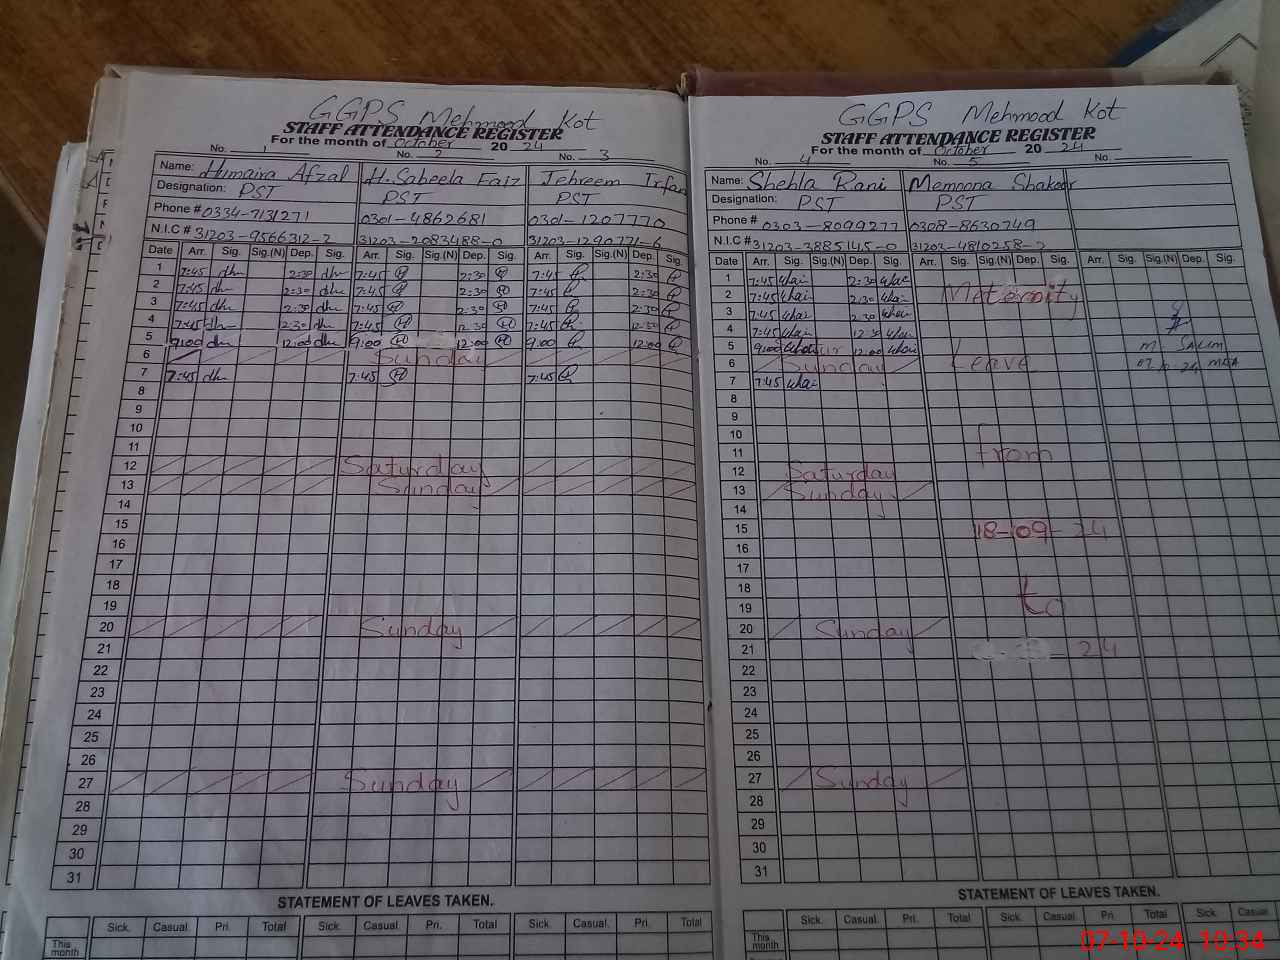 GGPS Mehmood Kot
STAFF ATTENDANCE REGISTER
For the month of October 20 24
No. 1 No. 2 No. 3
Name: Humaira Afzal H.Sabeela Faiz Tehreem Irfan
Designation: PST PST PST
Phone # 0334-7131271 0301-4862681 0301-1207770
N.I.C # 31203-9566312-2 31203-2083488-0 31203-1290771-6
Date Arr. Sig. Sig.(N) Dep. Sig. Arr. Sig. Sig.(N) Dep. Sig. Arr. Sig. Sig.(N) Dep. Sig.
1 7:45 2:30 7:45 2:30 7:45 2:30
2 7:45 2:30 7:45 2:30 7:45 2:30
3 7:45 2:30 7:45 2:30 7:45 2:30
4 7:45 2:30 7:45 12:30 7:45 12:30
5 9:00 12:00 9:00 12:00 9:00 12:00
6 Sunday
7 7:45 7:45 7:45
8
9
10
11
12 Saturday
13 Sunday
14
15
16
17
18
19
20 Sunday
21
22
23
24
25
26
27 Sunday
28
29
30
31
STATEMENT OF LEAVES TAKEN.
Sick. Casual. Pri. Total Sick. Casual. Pri. Total Sick. Casual. Pri. Total
This month
GGPS Mehmood Kot
STAFF ATTENDANCE REGISTER
For the month of October 20 24
No. 4 No. 5 No.
Name: Shehla Rani Memoona Shakoor
Designation: PST PST
Phone # 0303-8099277 0308-8630749
N.I.C # 31203-3885145-0 31203-4810258-2
Date Arr. Sig. Sig.(N) Dep. Sig. Arr. Sig. Sig.(N) Dep. Sig. Arr. Sig. Sig.(N) Dep. Sig.
1 7:45 2:30
2 7:45 2:30 Meternity
3 7:45 2:30
4 7:45 12:30
5 9:00 12:00 M. SALIM
6 Sunday Leave 07-10-24 MEA
7 7:45
8
9
10
11 from
12 Saturday
13 Sunday
14
15 18-09-24
16
17
18
19 to
20 Sunday
21 24
22
23
24
25
26
27 Sunday
28
29
30
31
STATEMENT OF LEAVES TAKEN.
Sick. Casual. Pri. Total Sick. Casual. Pri. Total Sick. Casual.
This month
07-10-24 10:34